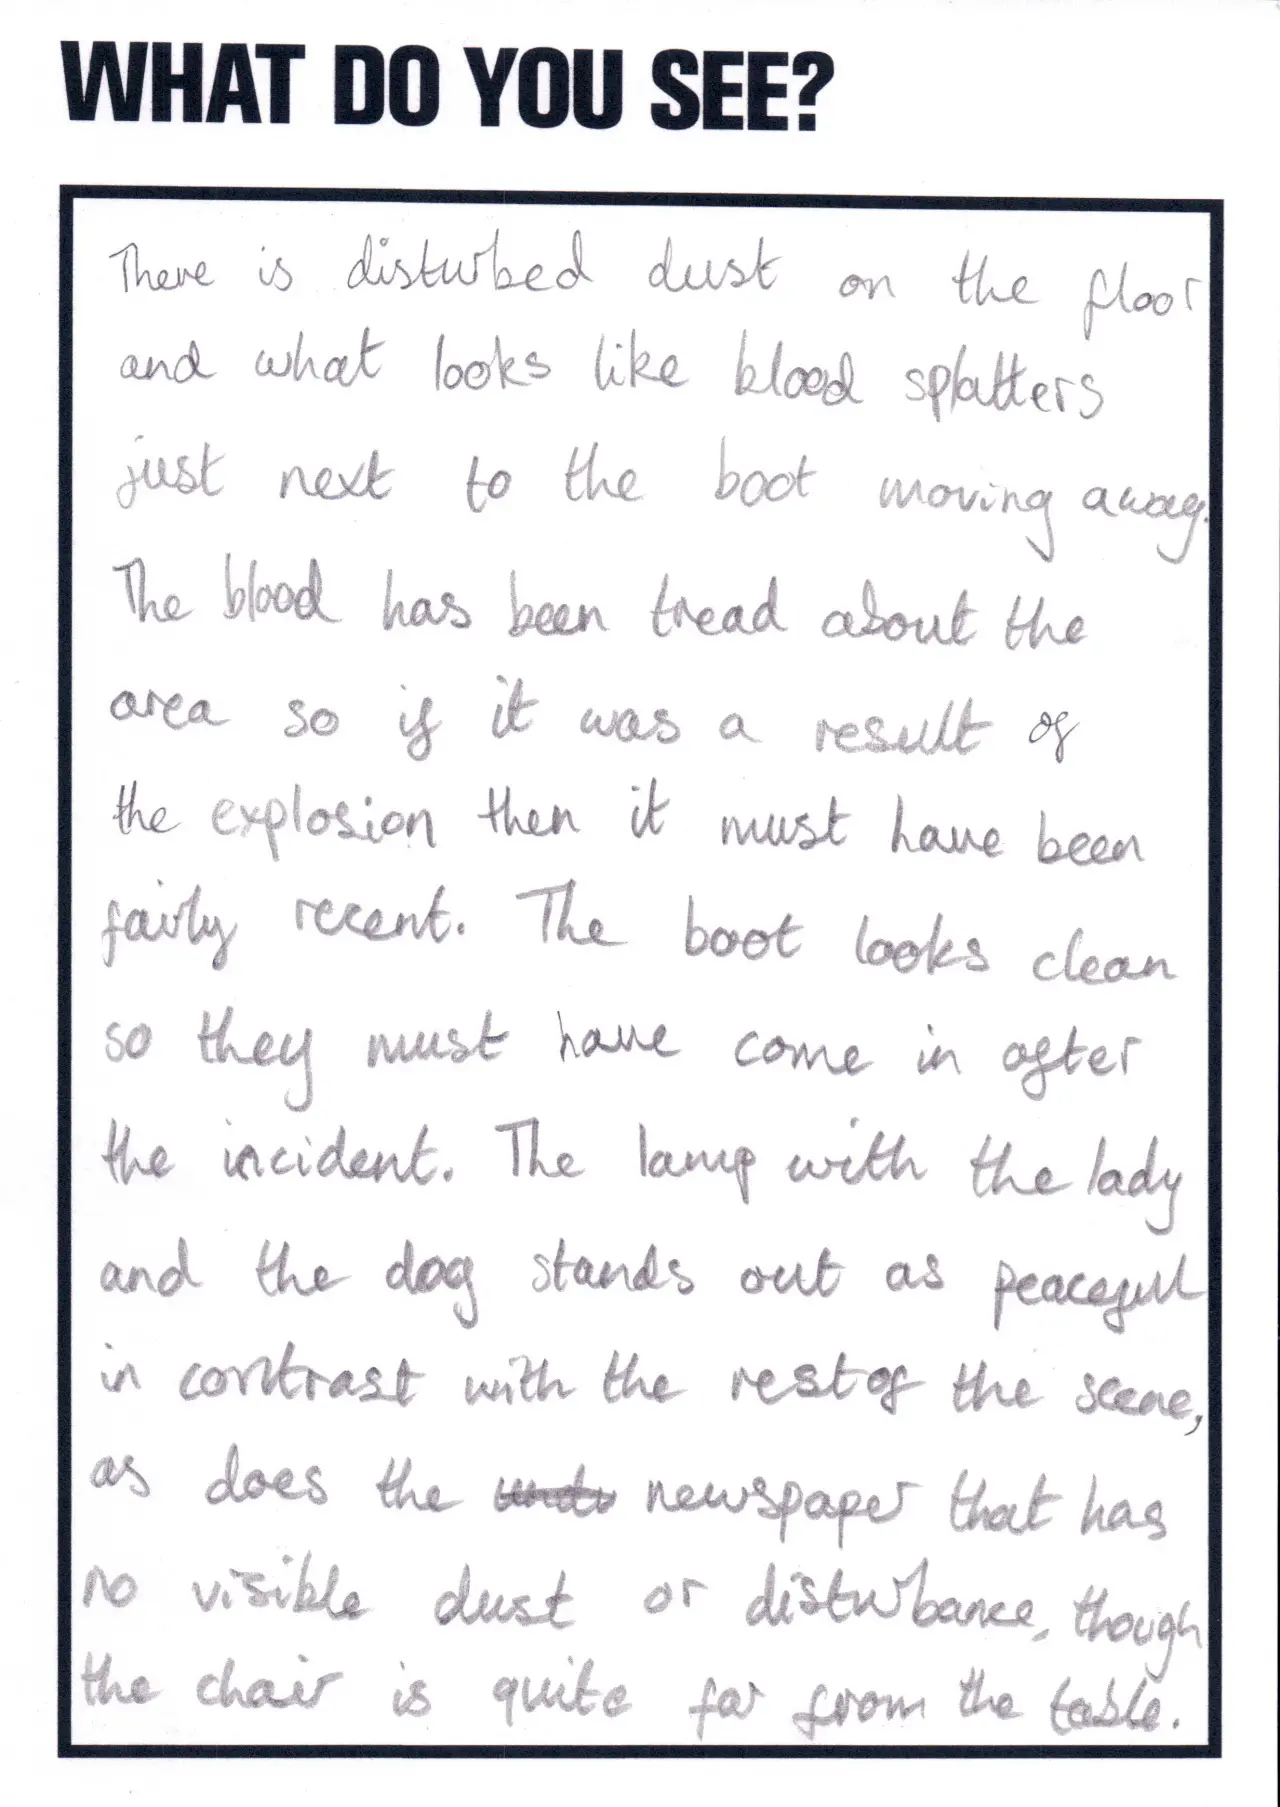 WHAT DO YOU SEE?
There is disturbed dust on the floor
and what looks like blood splatters
just next to the boot moving away.
The blood has been tread about the
area so if it was a result of
the explosion then it must have been
fairly recent. The boot looks clean
so they must have come in after
the incident. The lamp with the lady
and the dog stands out as peaceful
in contrast with the rest of the scene,
as does the newspaper that has
no visible dust or disturbance, though
the chair is quite far from the table.